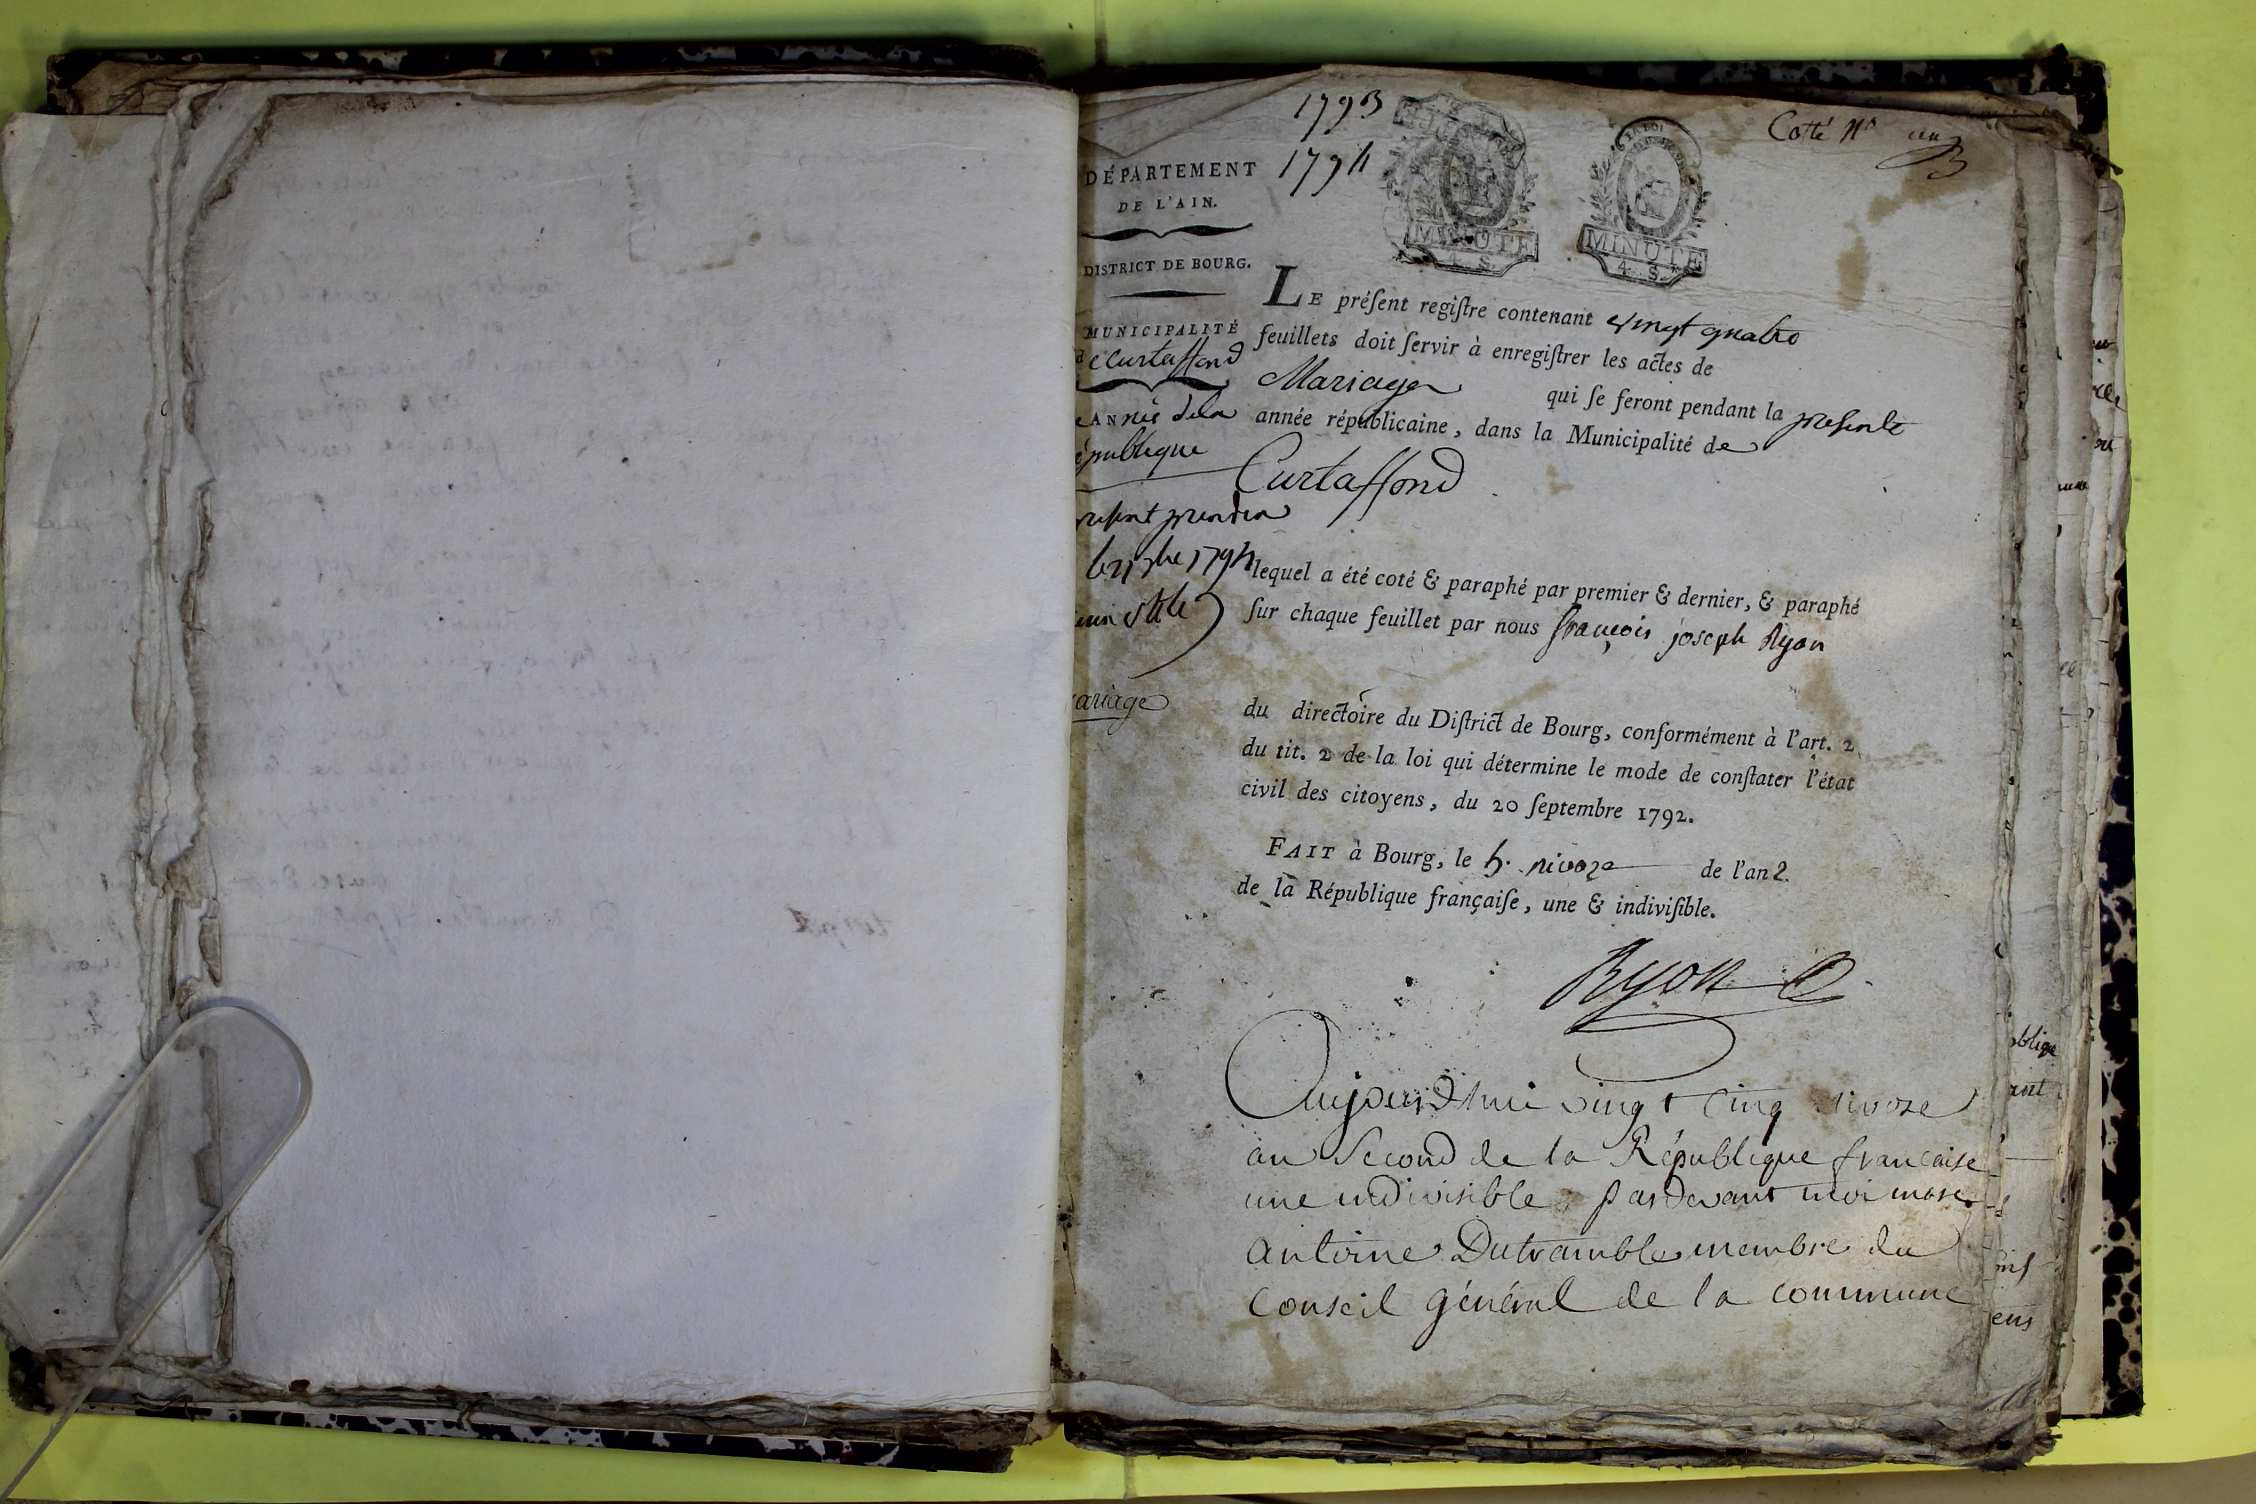 1793
1794
Cotté No un
LA LOI
MINUTE
4. S.
MINUTE
4. S.
DÉPARTEMENT
DE L'AIN.
DISTRICT DE BOURG.
MUNICIPALITÉ
de Curtaffond
Année de la
épublique
6 7bre 1794
ariage
LE préſent regiſtre contenant vingt quatre
feuillets doit ſervir à enregiſtrer les actes de
Mariage qui ſe feront pendant la preſente
année républicaine, dans la Municipalité de
Curtaffond
lequel a été coté & paraphé par premier & dernier, & paraphé
ſur chaque feuillet par nous françois joseph Ryon
du directoire du Diſtrict de Bourg, conformément à l'art. 2
du tit. 2 de la loi qui détermine le mode de conſtater l'état
civil des citoyens, du 20 ſeptembre 1792.
FAIT à Bourg, le 5. nivoze de l'an 2.
de la République françaiſe, une & indiviſible.
Ryon
Aujourd'hui vingt cinq nivoze
an Second de la République française
une indivisible, pardevant moi marc
antoine Dutramble membre du
Conseil général de la commune